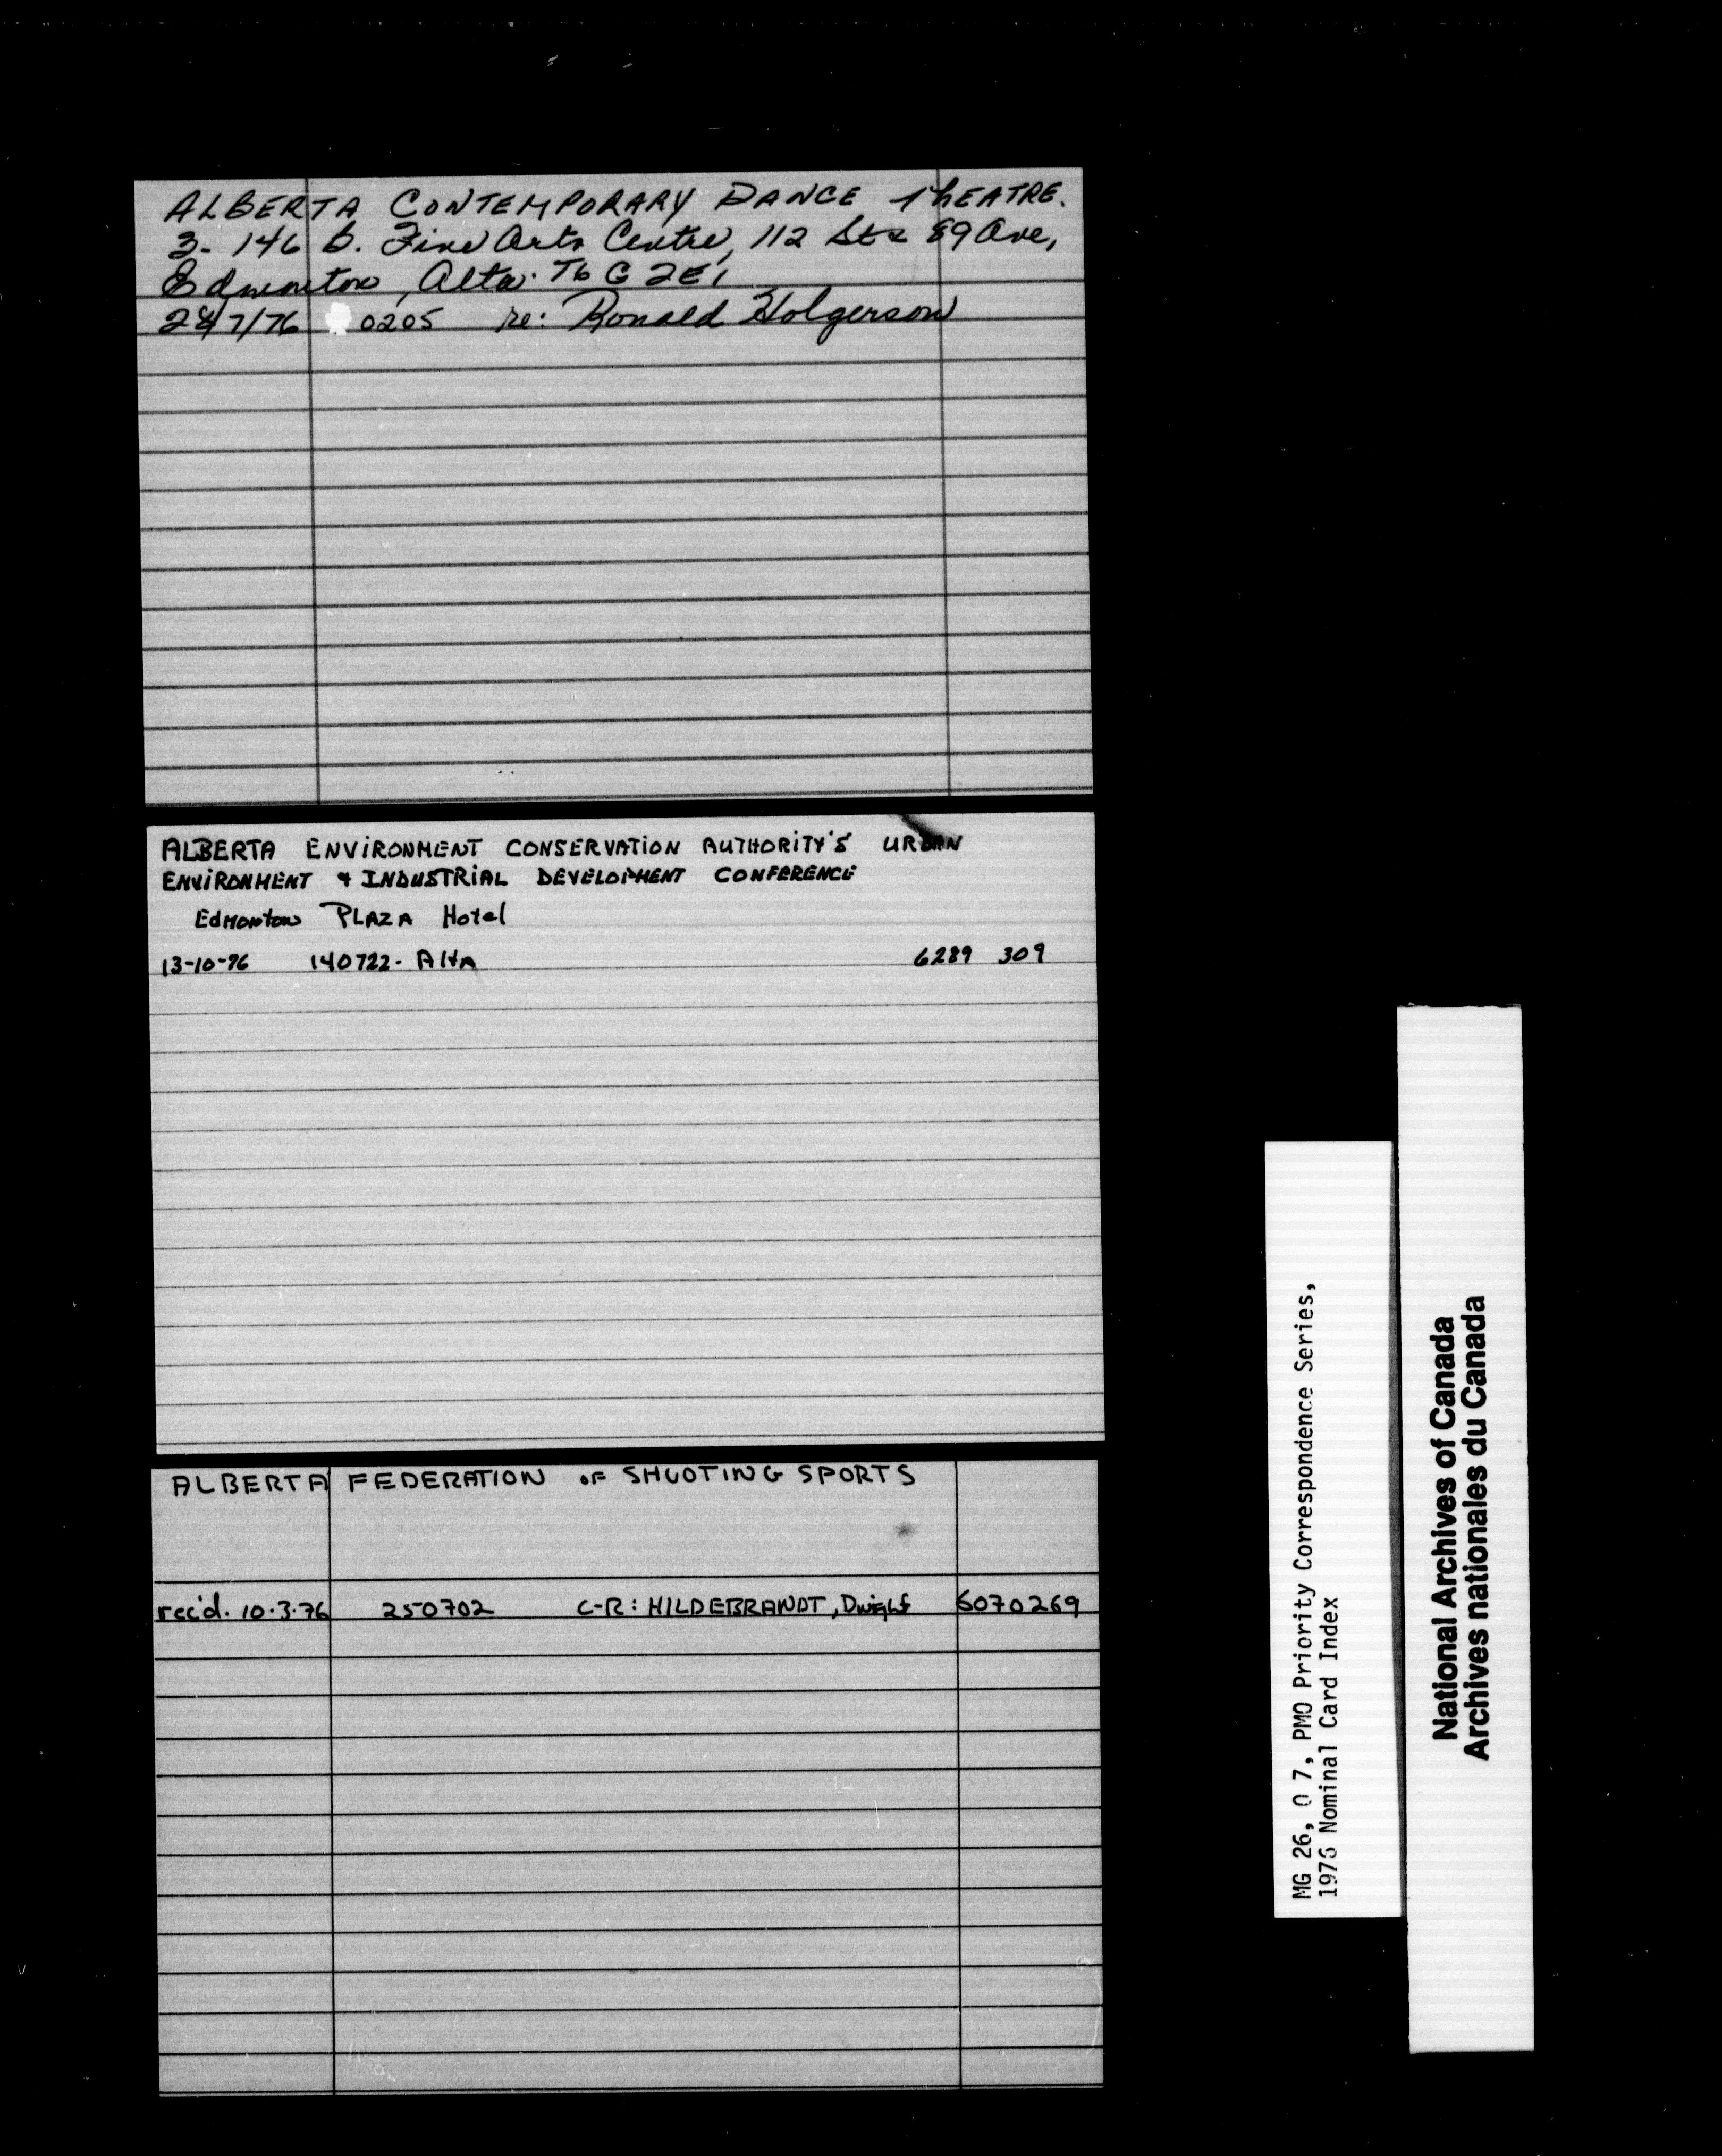 ALBERTA CONTEMPORARY DANCE THEATRE.
3-146 b. Fine Arts Centre, 112 St & 89 Ave,
Edmonton, Alta. T6G 2E1
28/7/76 0205 re: Ronald Holgerson
ALBERTA ENVIRONMENT CONSERVATION AUTHORITY'S URBAN
ENVIRONMENT & INDUSTRIAL DEVELOPMENT CONFERENCE
Edmonton PLAZA Hotel
13-10-76 140722- Alta 6289 309
ALBERTA FEDERATION OF SHOOTING SPORTS
rec'd. 10.3.76 250702 C-R: HILDEBRANDT, Dwight 6070269
MG 26, O 7, PMO Priority Correspondence Series,
1976 Nominal Card Index
National Archives of Canada
Archives nationales du Canada